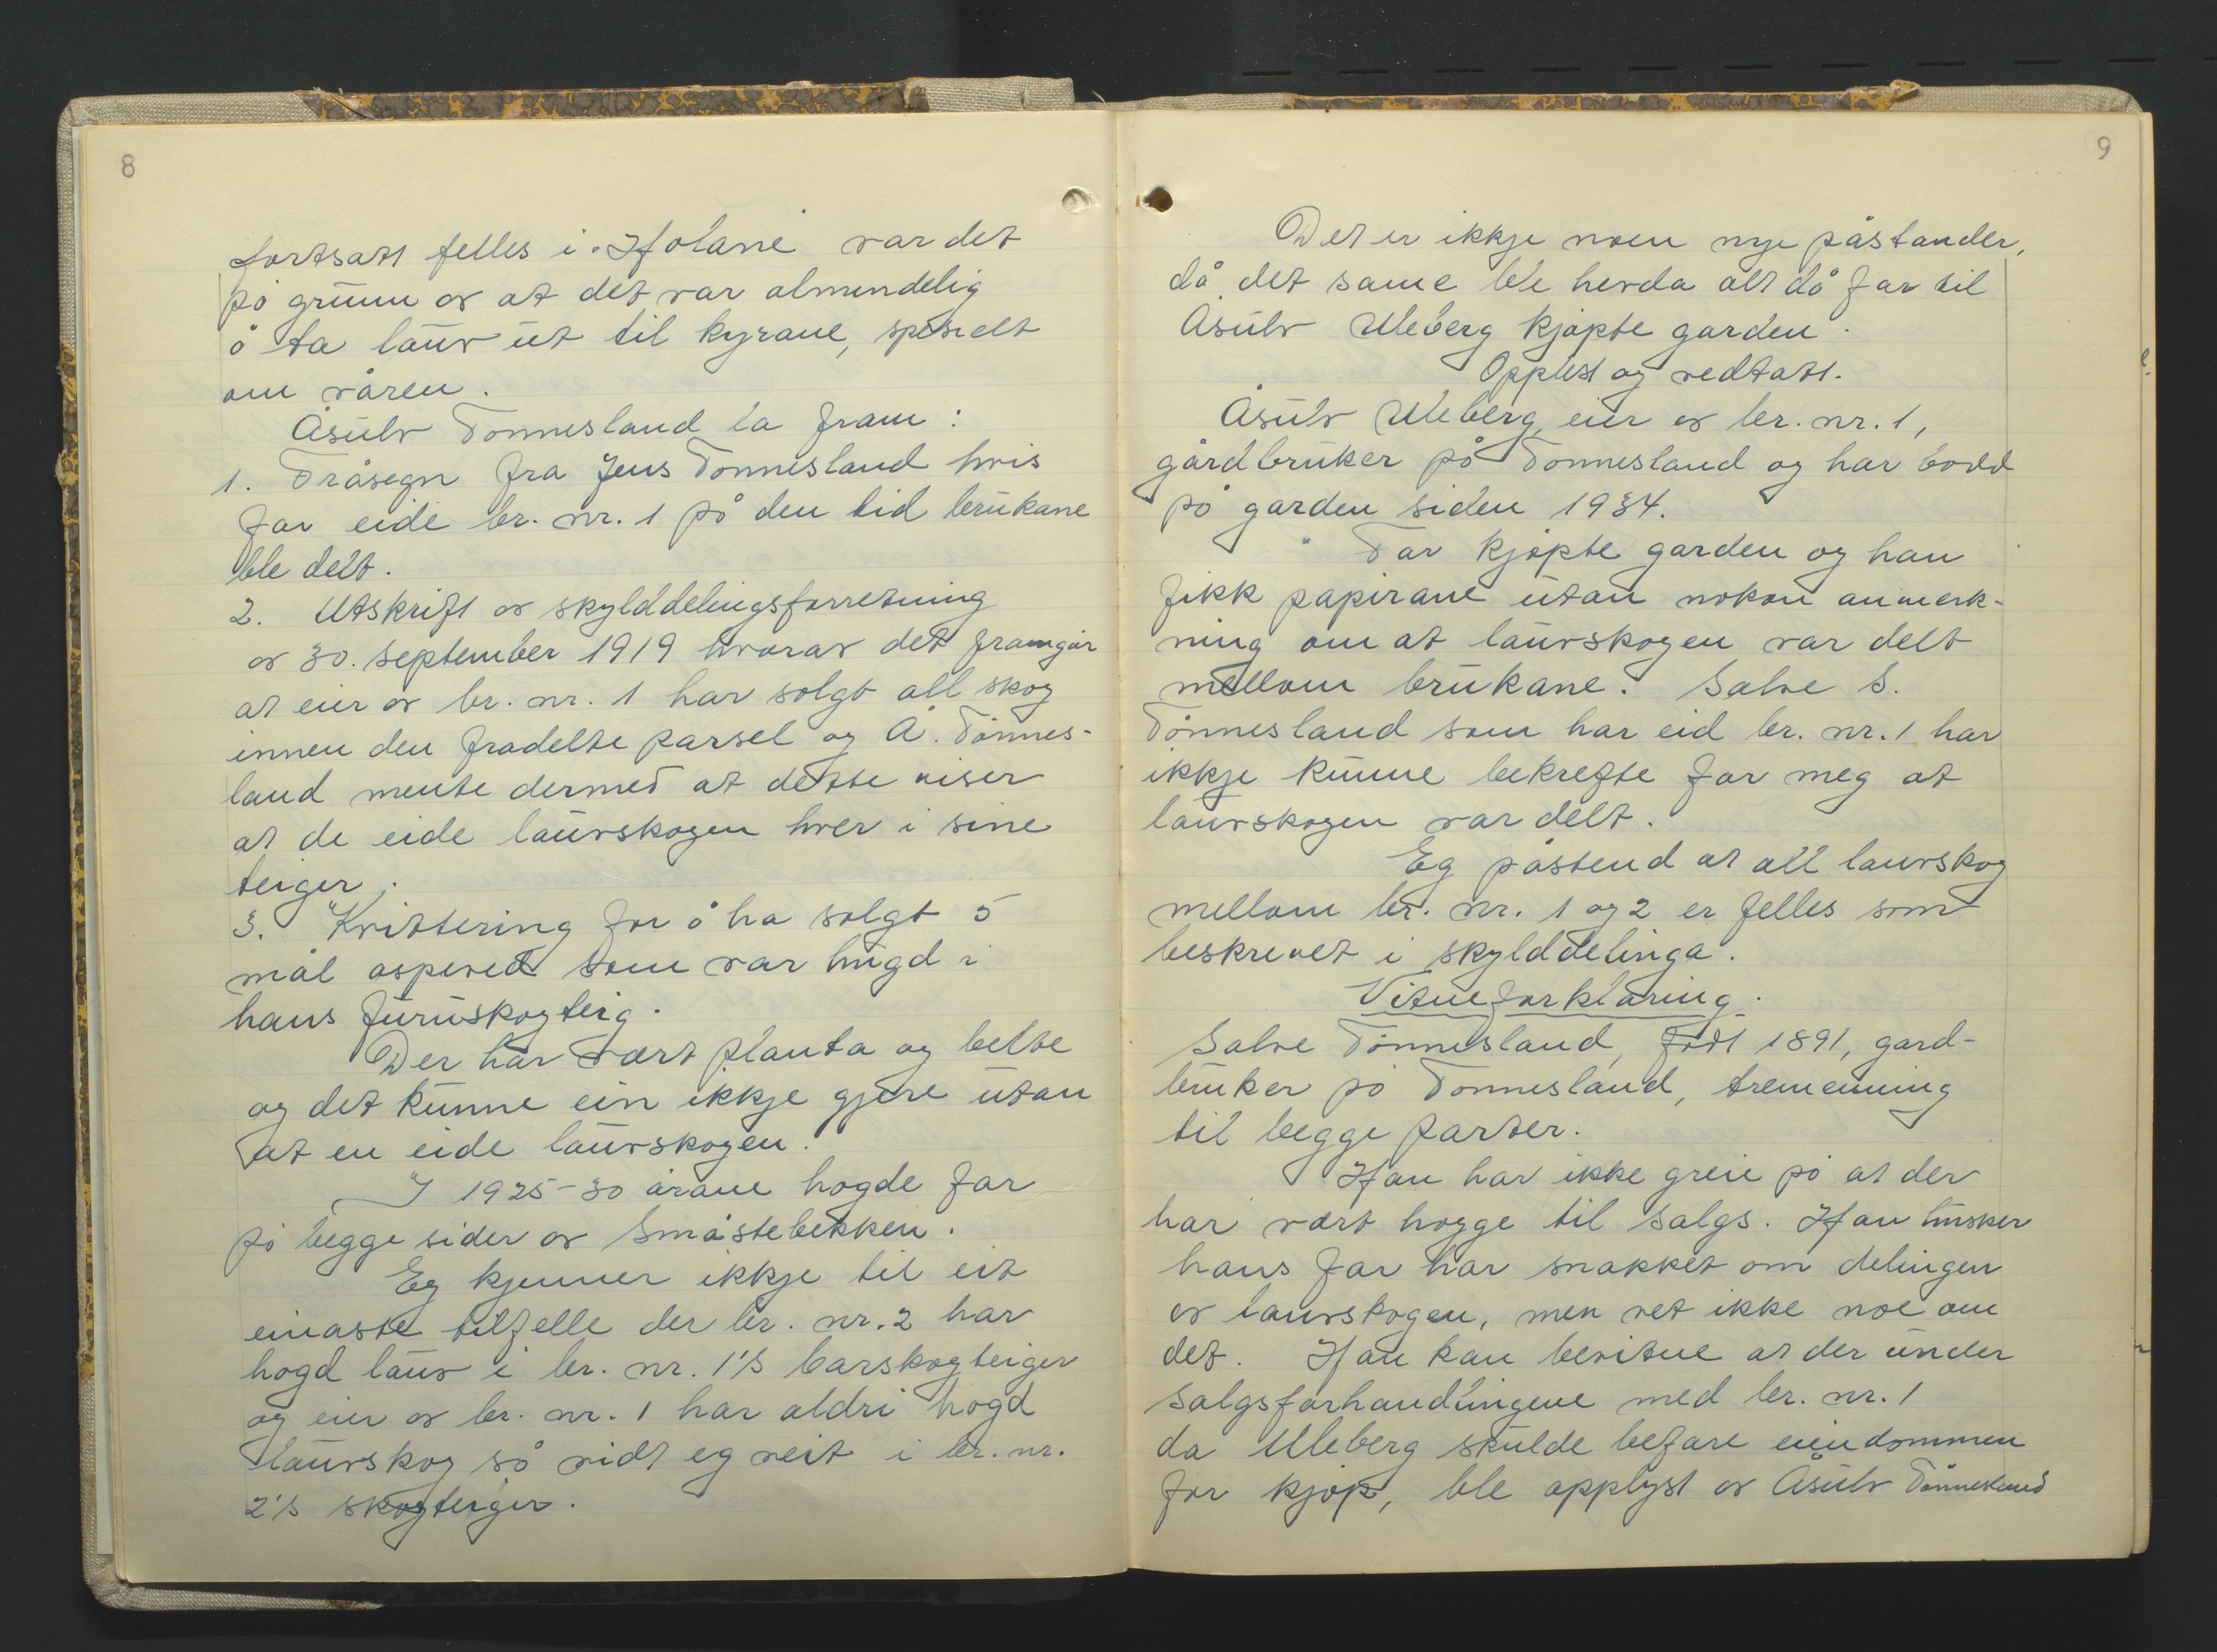 8
fortsatt felles i "Holane var det
på grunn av at det var almindelig
å ta lauv ut til kyrane, spesielt
om våren.
Åsulv Tønnesland la fram:
1. Fråsegn fra Jens Tønnesland hvis
far eide br. nr. 1 på den tid brukane
ble delt.
2. Utskrift av skylddelingsforretning
av 30. september 1919 hvorav det framgår
at eier av br. nr. 1 har solgt all skog
innen den fradelte parsel og Å. Tønnes-
land mente dermed at dette viser
at de eide lauvskogen hver i sine
teiger.
3. "Kvittering for å ha solgt 5
mål aspeved som var hugd i
hans furuskogteig.
Der har vært planta og belte
og det kunne ein ikkje gjere utan
at en eide lauvskogen.
I 1925-30 årane hogde far
på begge sider av Småstebekken.
Eg kjenner ikkje til eit
einaste tilfelle der br. nr. 2 har
hogd lauv i br. nr. 1's barskogteiger
og eier av br. nr. 1 har aldri hogd
lauvskog så vidt eg veit i br. nr.
2's skogteiger.
9
Det er ikkje noen nye påstander,
då det same ble hevda alt då far til
Åsulv Uleberg kjøpte garden.
Opplest og vedtatt.
Åsulv Uleberg, eier av br. nr. 1,
gårdbruker på Tønnesland og har bodd
på garden siden 1934.
" Far kjøpte garden og han
fikk papirane utan nokon anmerk-
ning om at lauvskogen var delt
mellom brukane. Salve S.
Tønnesland som har eid br. nr. 1 har
ikkje kunne bekrefte for meg at
lauvskogen var delt.
Eg påstend at all lauvskog
mellom br. nr. 1 og 2 er felles som
beskrevet i skylddelinga.
Vitneforklaring.
Salve Tønnesland, født 1891, gard-
bruker på Tønnesland, tremenning
til begge parter.
Han har ikke greie på at der
har vært hogge til salgs. Han husker
hans far har snakket om delingen
av lauvskogen, men vet ikke noe om
det. Han kan bevitne at der under
salgsforhandlingene med br. nr. 1
da Uleberg skulde befare eiendommen
for kjøp, ble opplyst av Åsulv Tønnesland